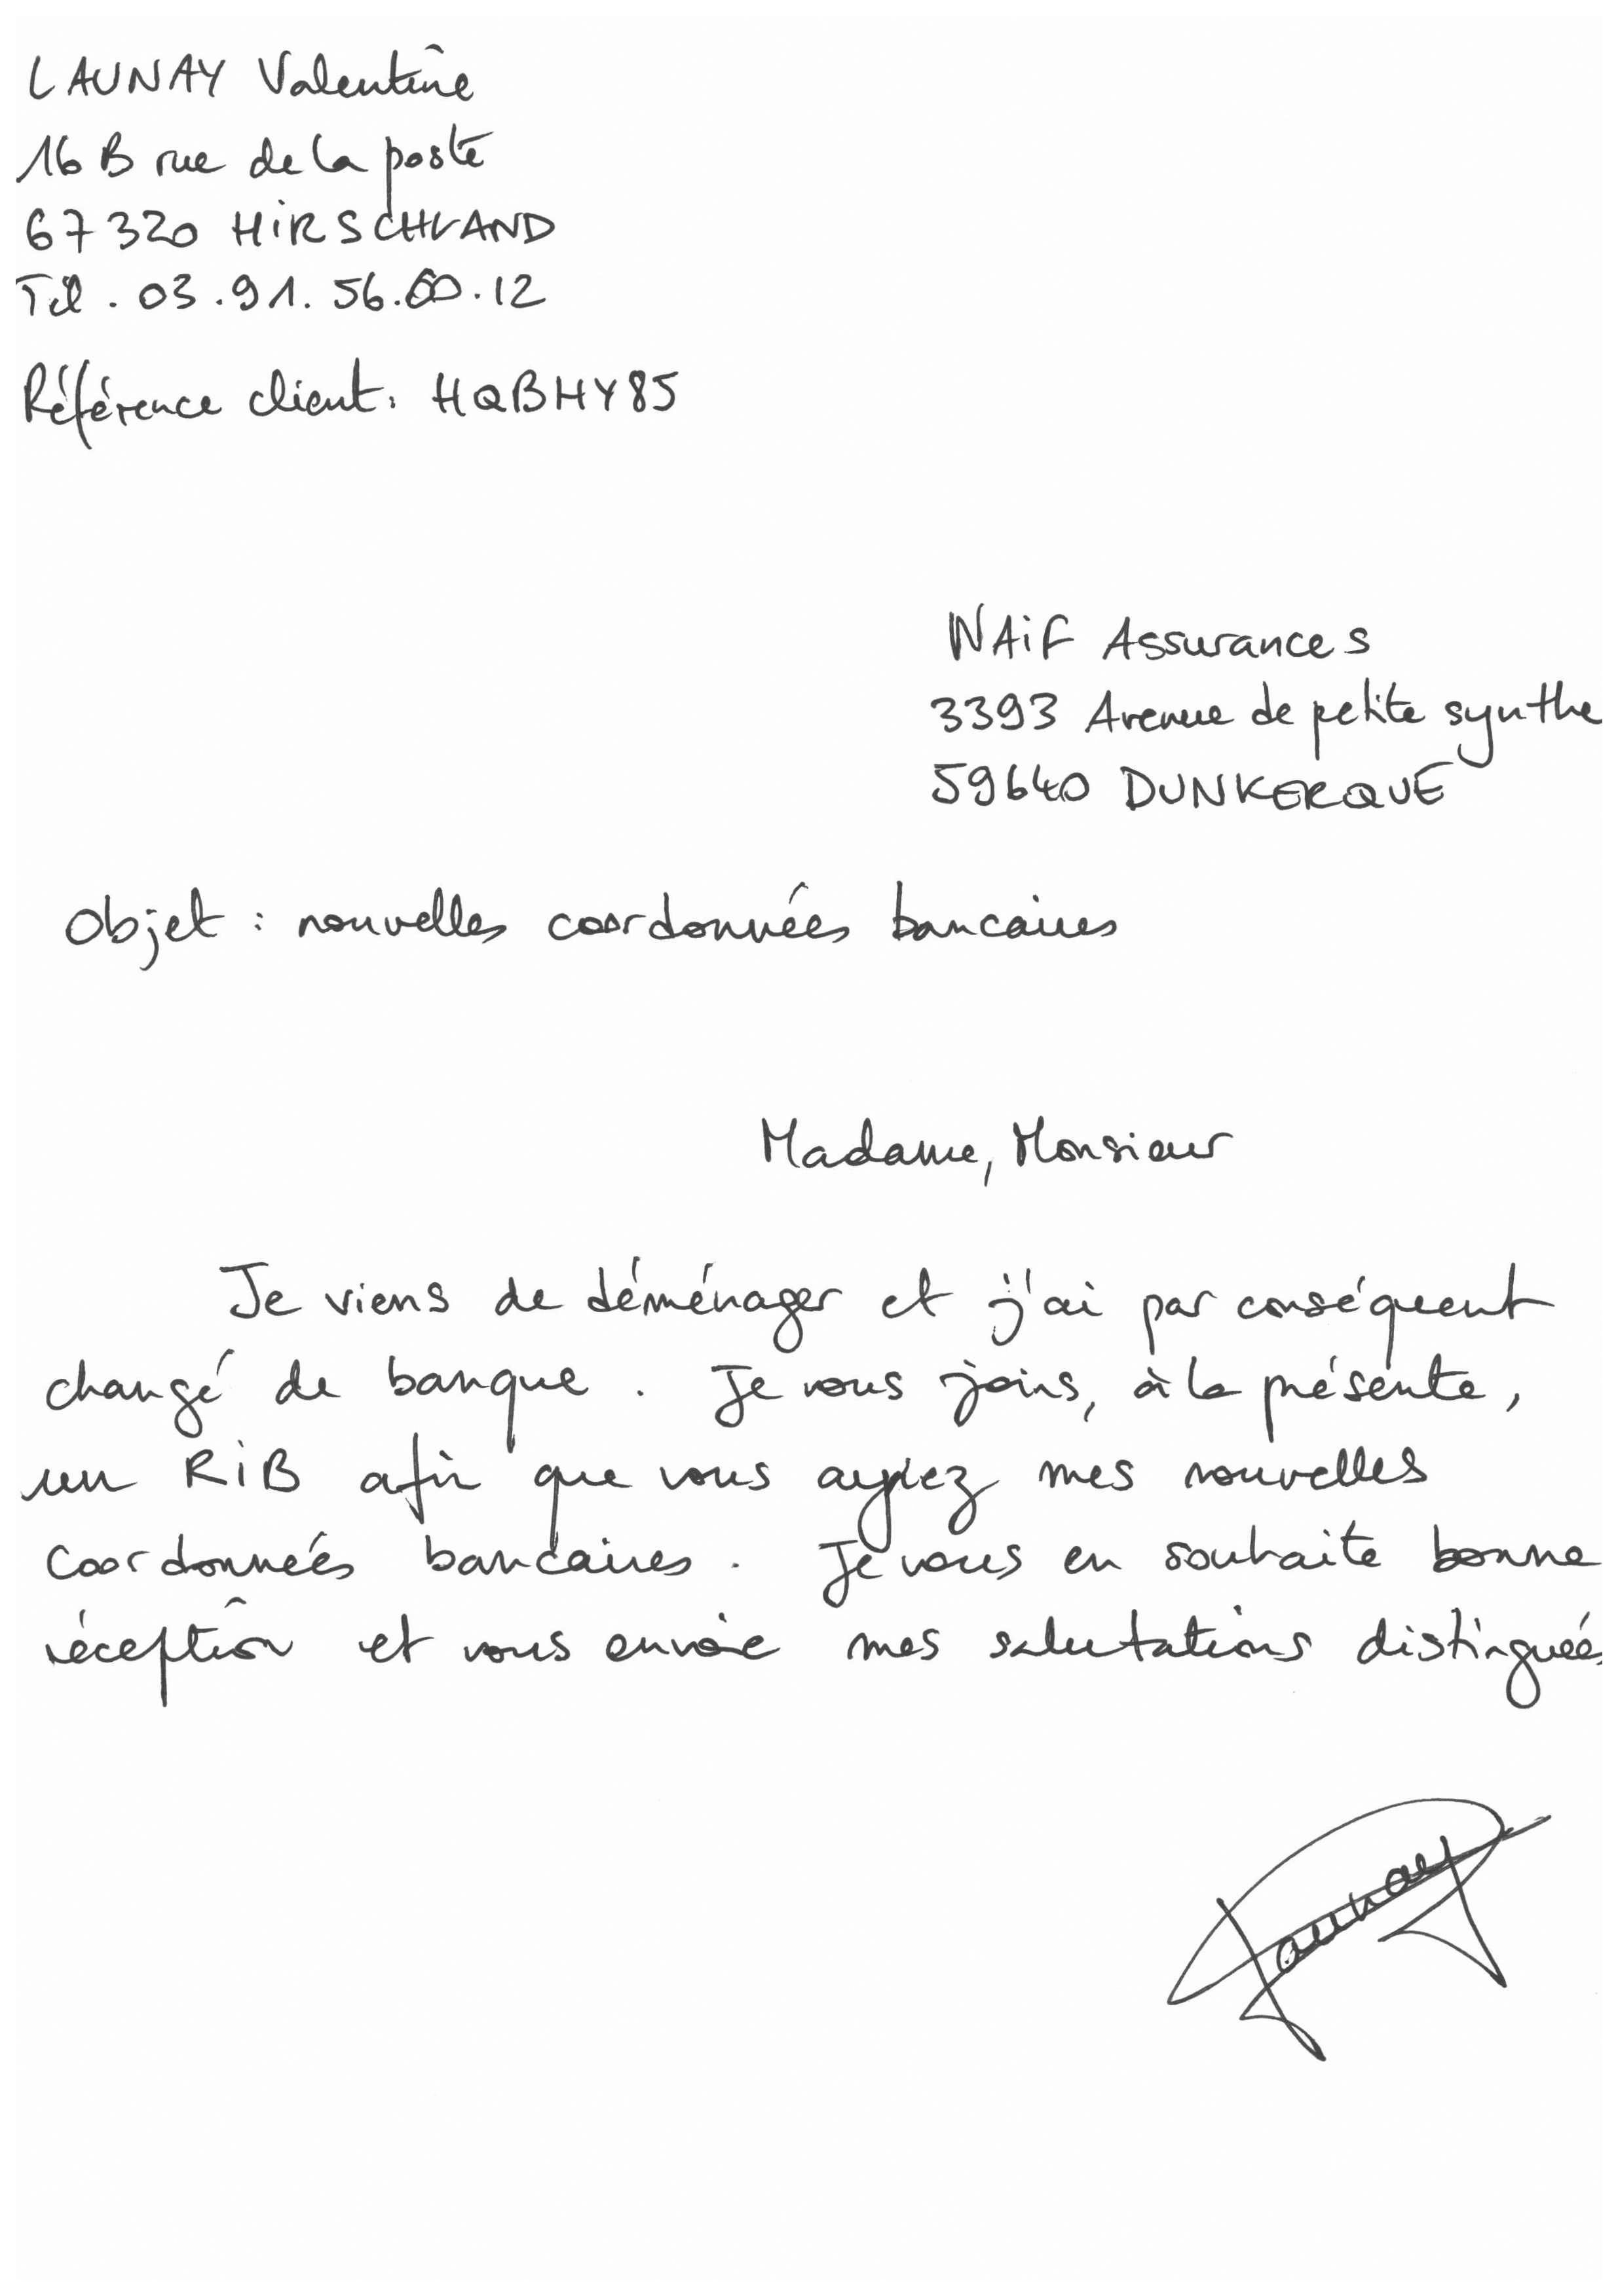 LAUNAY Valentine
16 B rue de la poste
67320 HiRSCHLAND
Tél. 03.91.56.60.12
Référence client: HQBHY85
WAiF Assurances
3393 Avenue de petite synthe
59640 DUNKERQUE
Objet : nouvelles coordonnées bancaires
Madame, Monsieur
Je viens de déménager et j'ai par conséquent
changé de banque. Je vous joins, à la présente,
un RiB afin que vous ayiez mes nouvelles
coordonnées bancaires. Je vous en souhaite bonne
réception et vous envoie mes salutations distinguées
Launay